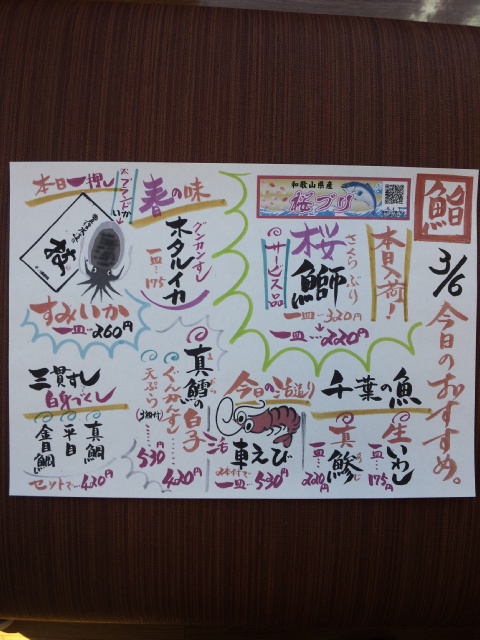 鮨
3/6 今日のおすすめ。
本日入荷!
和歌山県産
桜ブリ
桜鰤
さくら ぶり
一皿…320円
→220円
サービス品
春の味
グンカンすし
ホタルイカ
一皿…175
本日一押し
すみいか
一皿…260円
千葉の魚
生いわし
一皿…175円
真鯵
あじ
一皿…220円
今日の活造り
車えび
2本付で
一皿…530円
真鱈の白子
ぐんかんすし……420円
天ぷら(3ヶ付)……530円
三貫すし
白身づくし
真鯛
平目
金目鯛
セットで…420円